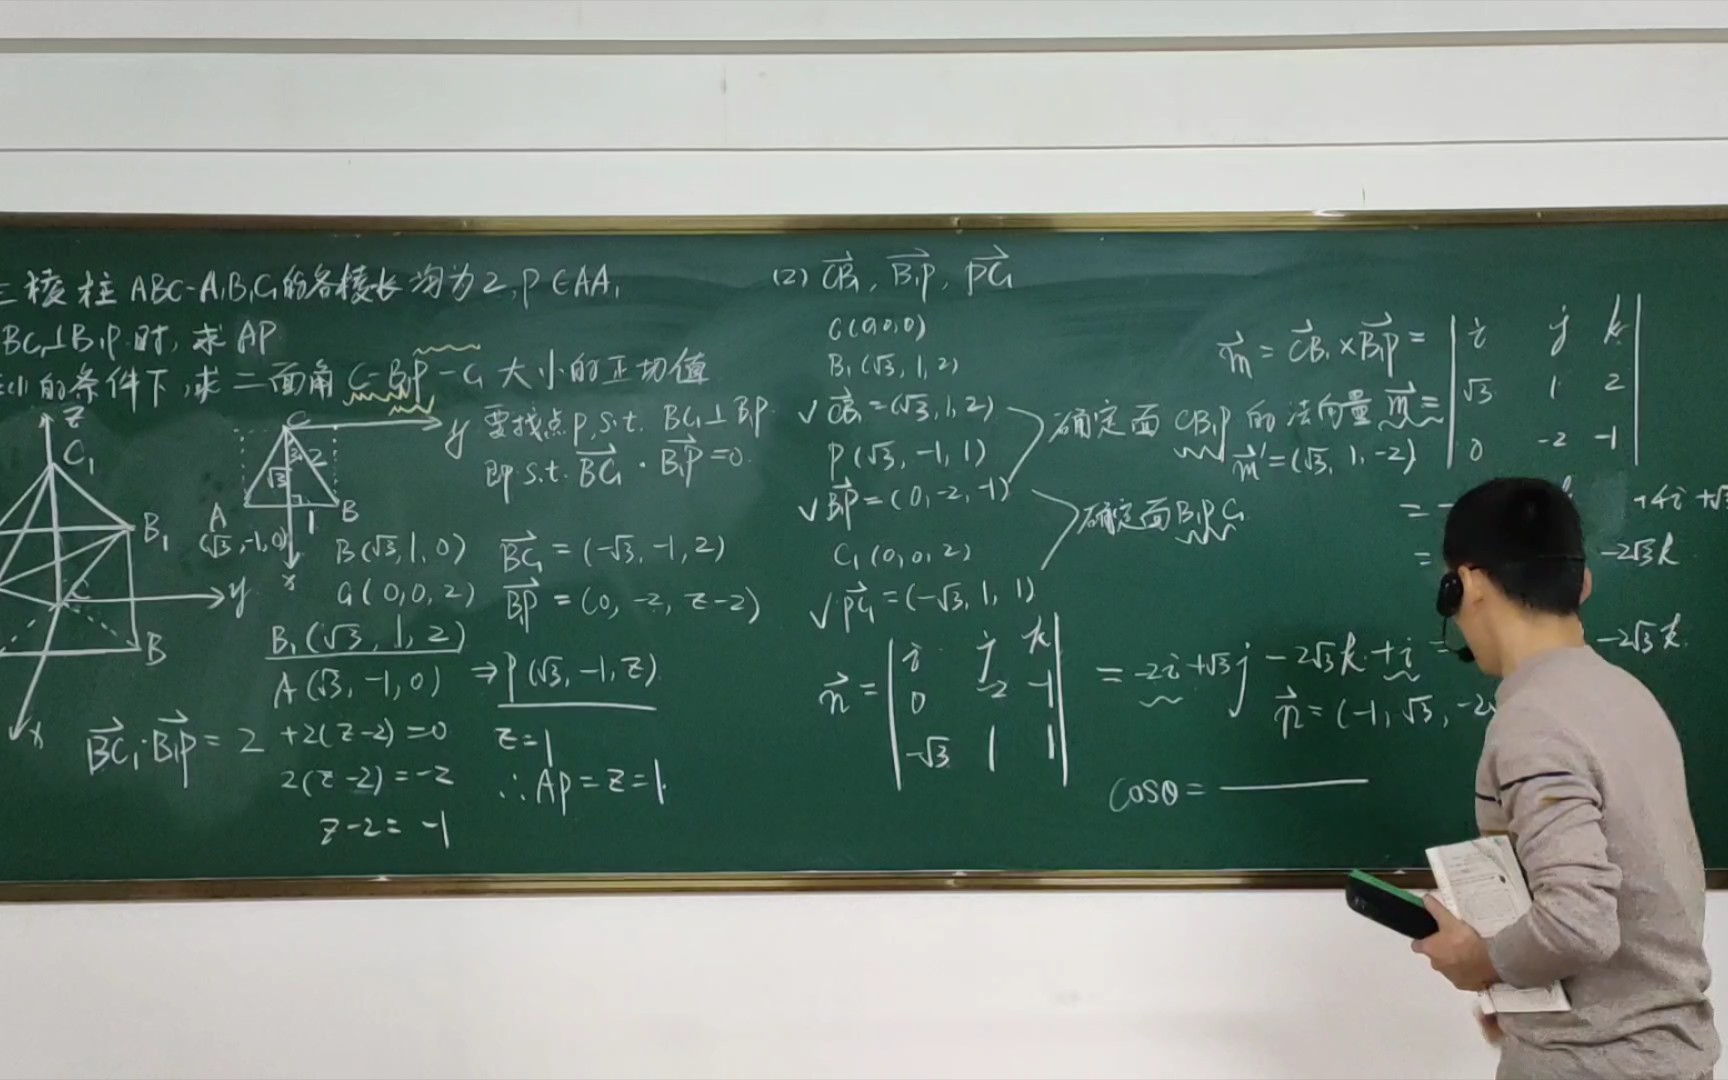 三棱柱 ABC-A₁B₁C₁的各棱长均为2,P∈AA₁
BC₁⊥B₁P.时,求AP
的条件下,求二面角 C-B₁P-C₁ 大小的正切值
要找点P,s.t. BC₁⊥B₁P.
即 s.t. BC₁·B₁P=0.
z
C₁
B₁
C
y
B
x
C
y
√3
2
1
A
B
(√3,-1,0)
x
B(√3,1,0)
C₁(0,0,2)
B₁(√3,1,2)
A(√3,-1,0)
BC₁=(-√3,-1,2)
B₁P=(0,-2,z-2)
⇒P(√3,-1,z).
BC₁·B₁P=2+2(z-2)=0
2(z-2)=-2
z-2=-1
z=1
∴AP=z=1.
(2) CB₁, B₁P, PC₁
C(0,0,0)
B₁(√3,1,2)
√ CB₁=(√3,1,2)
P(√3,-1,1)
√ B₁P=(0,-2,-1)
C₁(0,0,2)
√ PC₁=(-√3,1,1)
确定面 CB₁P 的法向量 m=
m'=(√3,1,-2)
确定面B₁PC₁
m=CB₁×B₁P=
i j k
√3 1 2
0 -2 -1
=-
+4i+√3
=
-2√3k
n=
i j k
0 -2 -1
-√3 1 1
=-2i+√3j-2√3k+i=
-2√3k.
n=(-1,√3,-2
cosθ=